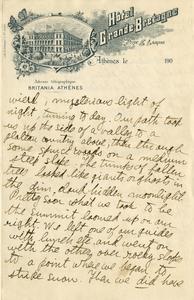 Hôtel
Grande Bretagne
Athènes
Adresse télégraphique:
BRITANIA ATHÈNES
Athènes le 190
wierd, mysterious light of
night turning to day. Our path took
us up the side of a valley to a
flatter country above, then through
some sparse woods on a medium
steep slope. The trunks of fallen
trees looked like giants or ghosts in
the dim, cloud hidden moonlight
Pretty soon what we took to be
the summit loomed up on our
right. We left one of our guides
with lunch etc and went on
with the other, over rocky slope
to a point where we began to
strike snow. Then we did have